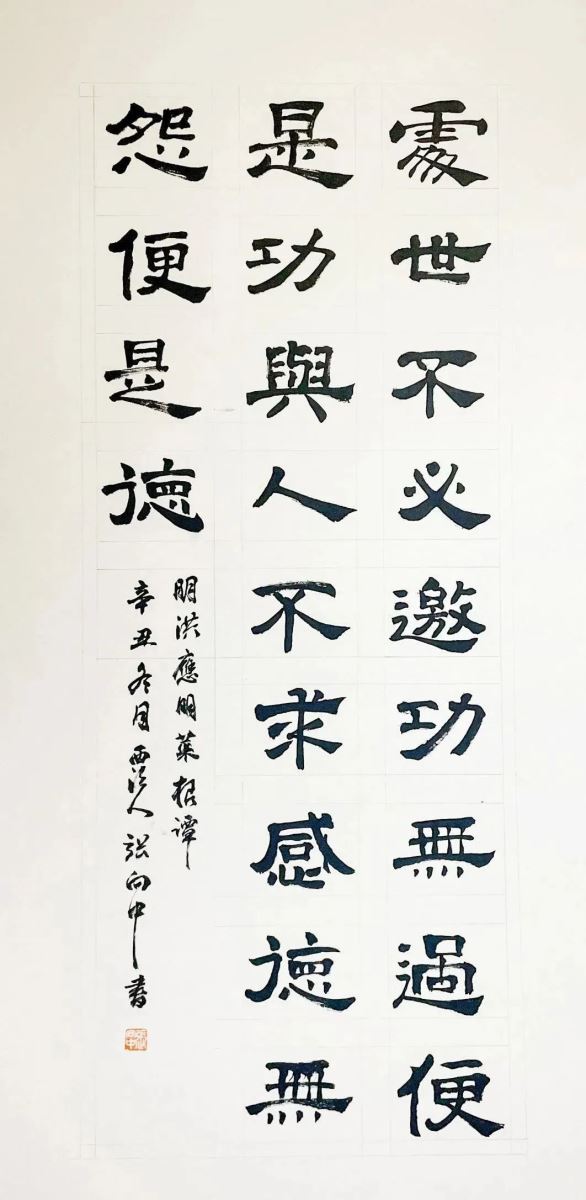 處世不必邀功無過便
是功與人不求感德無
怨便是德
明洪應明菜根譚
辛丑冬月人張向中書